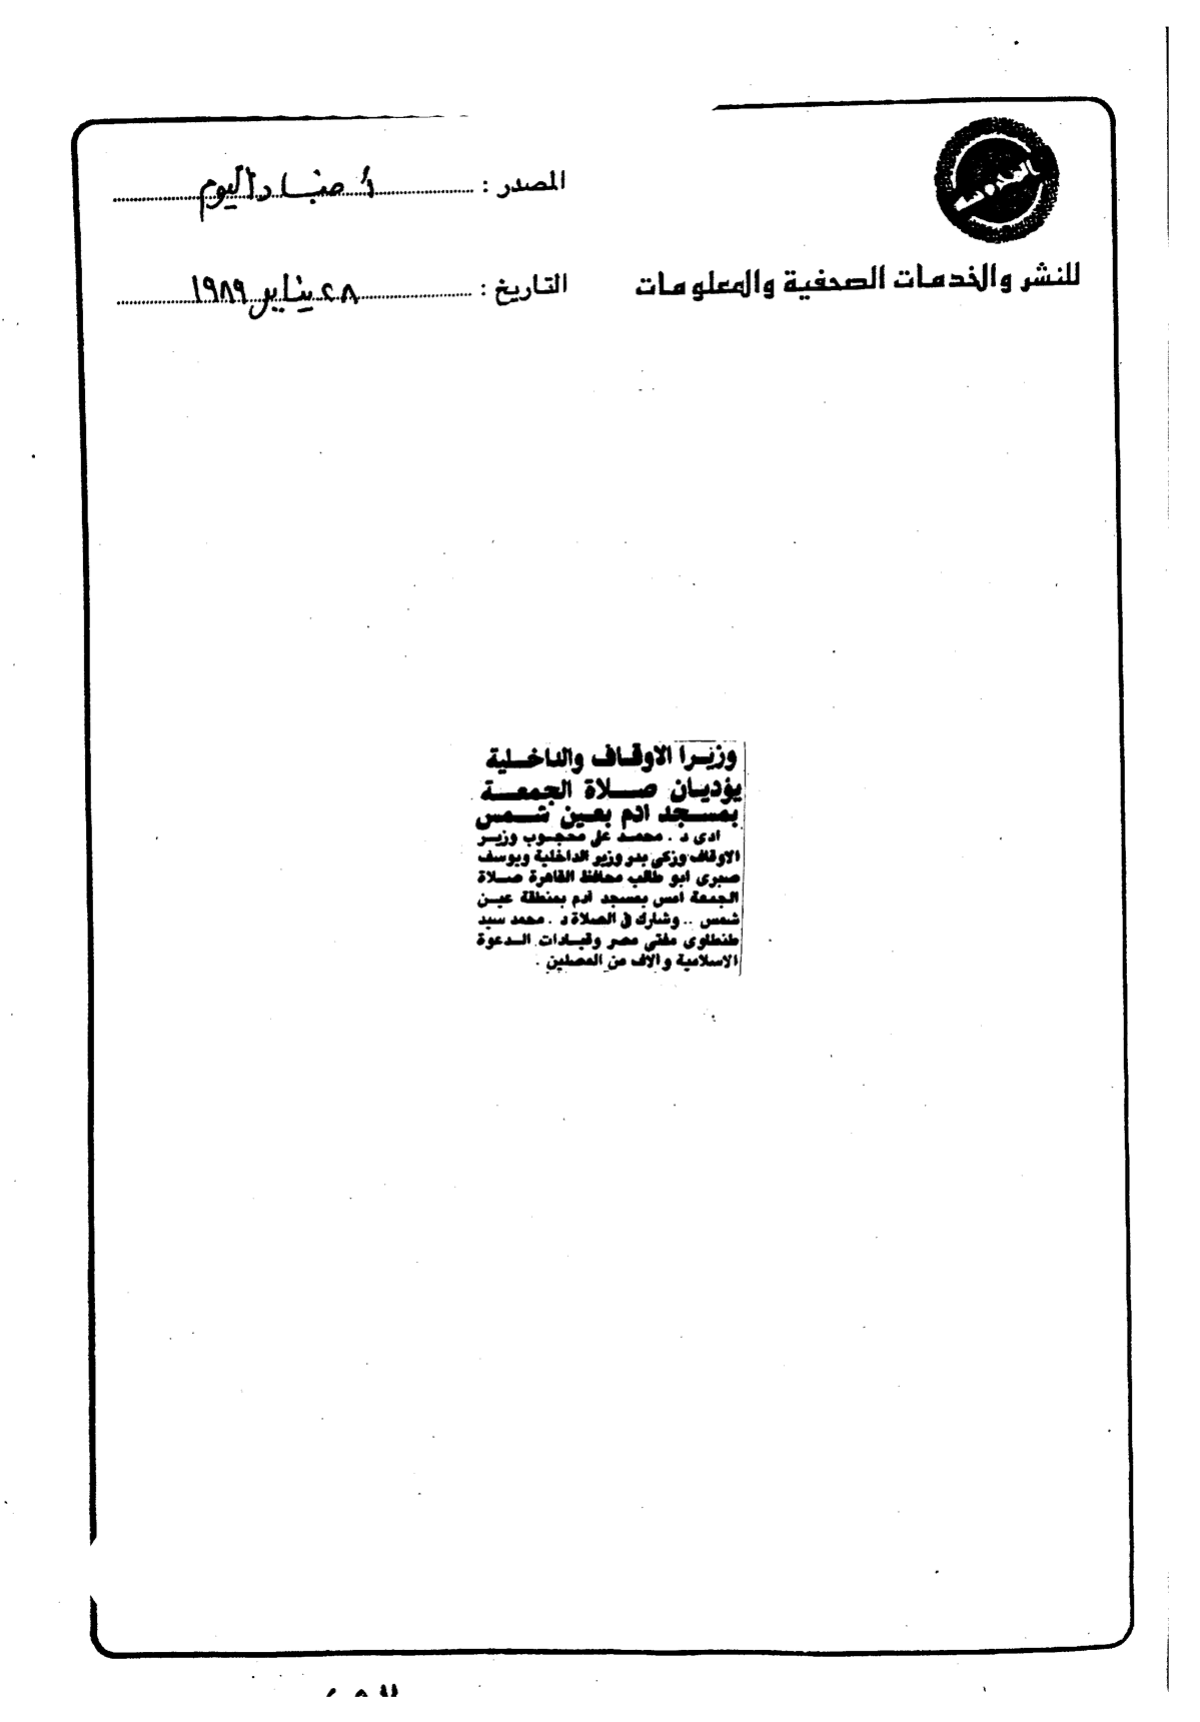 المصدر : أخبار اليوم
للنشر والخدمات الصحفية والمعلومات
التاريخ : ٢٨ يناير ١٩٨٩
وزيرا الاوقاف والداخلية
يؤديان صلاة الجمعة
بمسجد ادم بعين شمس
ادى د . محمد على محجوب وزير
الاوقاف وزكى بدر وزير الداخلية ويوسف
صبرى ابو طالب محافظ القاهرة صلاة
الجمعة امس بمسجد ادم بمنطقة عين
شمس .. وشارك فى الصلاة د . محمد سيد
طنطاوى مفتى مصر وقيادات الدعوة
الاسلامية والاف من المصلين .